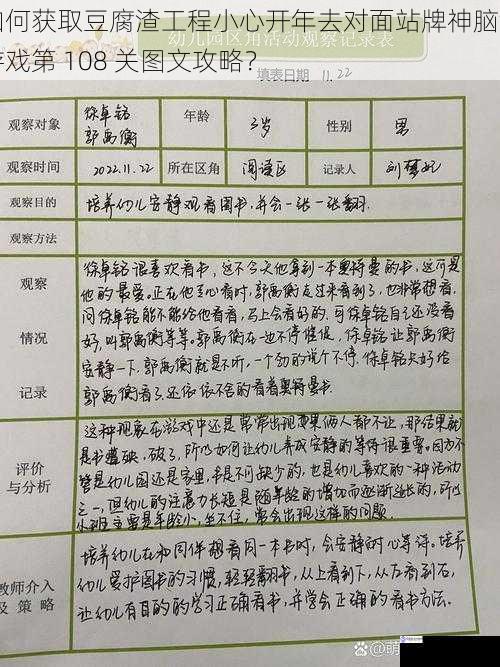 如何获取豆腐渣工程小心开年去对面站牌神脑
游戏第 108 关图文攻略？
幼儿园区角活动观察记录表
填表日期 11.22
观察对象 徐卓铭 郭禹衡 年龄 3岁 性别 男
观察时间 2022.11.22 所在区角 阅读区 记录人
观察目的 培养幼儿安静观看图书,并会一张一张翻.
观察方法
徐卓铭很喜欢看书，这不今天他拿到一本奥特曼的书，这可是
观察 他的最爱。正在他专心看时，郭禹衡走过来看到了，也非常想看，
问徐卓铭能不能给他看看，马上会看好的，可徐卓铭自己还没看
情况 好，叫郭禹衡等等。郭禹衡在一边不停催促，徐卓铭让郭禹衡
安静一下，郭禹衡就是不听，一个劲的说个不停，徐卓铭只好给
记录 郭禹衡看了，还依依不舍的看着奥特曼书.
这种现象在游戏中还是常常出现，如果俩人都不让，那结果就
评价 是书遭殃，破了，所以如何让幼儿养成安静的等待很重要。因为不
与分析 管是幼儿园还是家里，书是不可缺少的，也是幼儿喜欢的一种活动
之一，但幼儿的注意力长短是随年龄的增加而逐渐延长的，所以
小班主要是年龄小，坐不住，常会出现这样的问题.
培养幼儿在和同伴想看同一本书时，会安静耐心等待。培养
教师介入 幼儿爱护图书的习惯，轻轻翻书，从上看到下，从左看到右，
及 策 略 让幼儿有目的的学习正确看书，并学会正确的看书方法.
Bai百度 @萌